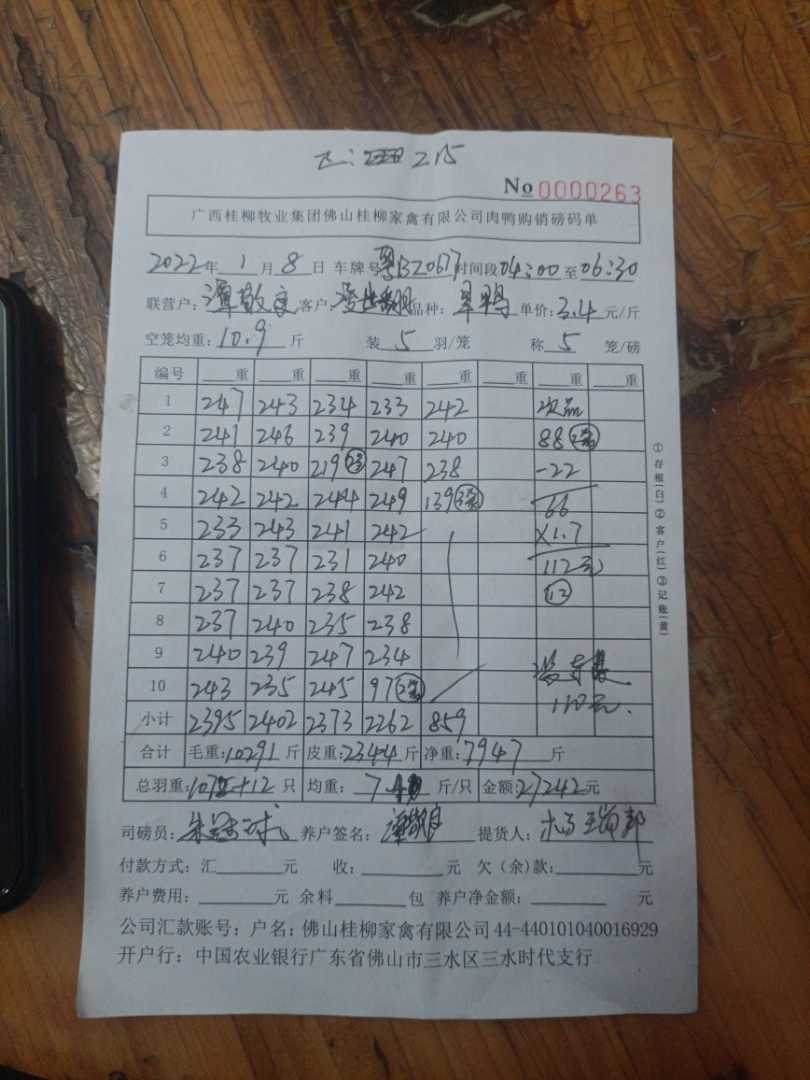 215
No 0000263
广西桂柳牧业集团佛山桂柳家禽有限公司肉鸭购销磅码单
2022年 1 月 8 日 车牌号 粤 时间段 04:00 至 06:30
联营户: 客户: 品种: 单价: 3.4 元/斤
空笼均重: 10.9 斤 装 5 羽/笼 称 5 笼/磅
编号 重 重 重 重 重 重 重 重
1 247 243 234 233 242 次品
2 241 246 239 240 240 88
3 238 240 219 247 238 -22
4 242 242 244 249 139 66
5 233 243 241 242 X1.7
6 237 237 231 240 112元
7 237 237 238 242 12
8 237 240 235 238
9 240 239 247 234
10 243 235 245 97 110元.
小计 2395 2402 2373 2262 859
合计 毛重: 10291 斤 皮重: 2344 斤 净重: 7947 斤
总羽重: +12 只 均重: 斤/只 金额: 27242 元
司磅员: 养户签名: 提货人:
付款方式: 汇 元 收: 元 欠(余)款: 元
养户费用: 元 余料 包 养户净金额: 元
公司汇款账号: 户名: 佛山桂柳家禽有限公司 44-440101040016929
开户行: 中国农业银行广东省佛山市三水区三水时代支行
①存根(白)②客户(红)③记账(黄)